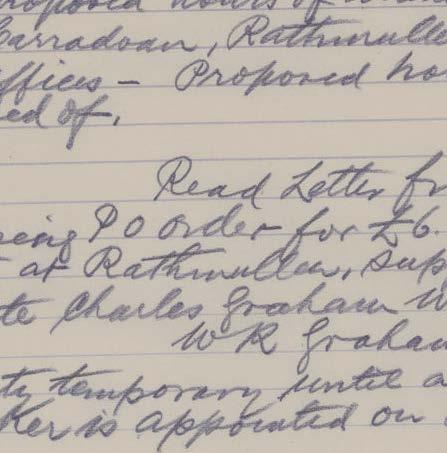 proposed hours of
Carradoan, Rathmulle
ffices - Proposed ho
ed of.
Read Letter fr
ing P O order for £6.
at Rathmullen, sup
te Charles Graham W
W R Graham
ty temporary until a
Ker is appointed on